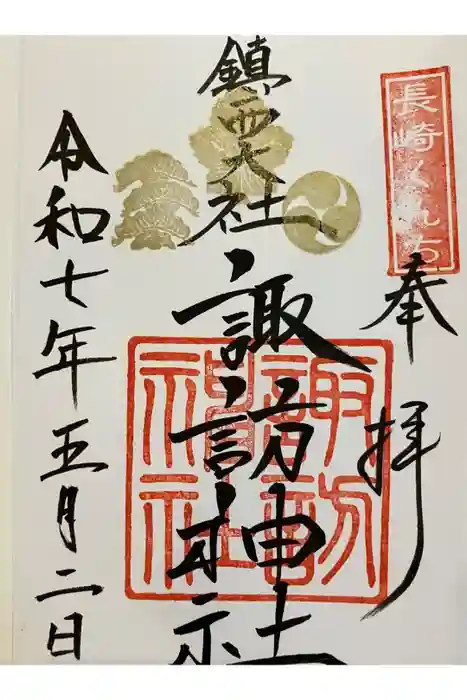 長崎くんち
奉拝
鎮西大社
諏訪神社
諏訪
神社
令和七年五月二日